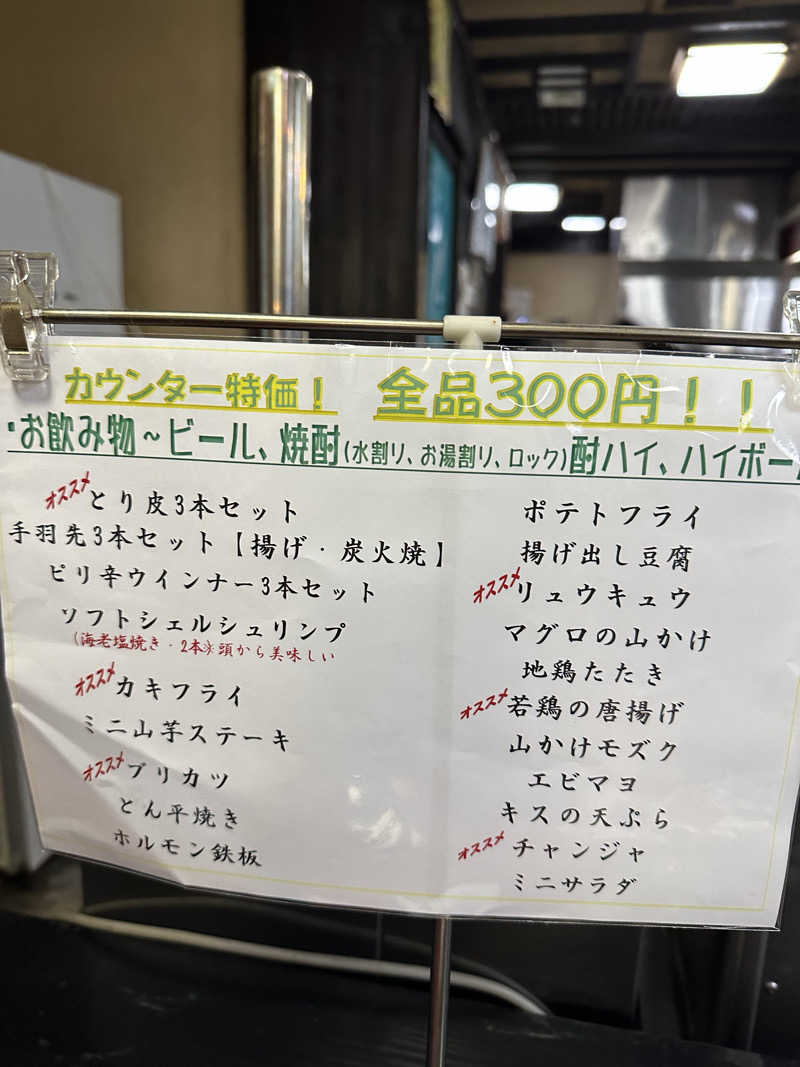 カウンター特価！　全品300円！！
・お飲み物～ビール、焼酎(水割リ、お湯割リ、ロック)酎ハイ、ハイボー
オススメ とり皮3本セット
手羽先3本セット【揚げ・炭火焼】
ピリ辛ウインナー3本セット
ソフトシェルシュリンプ
(海老塩焼き・2本※頭から美味しい
オススメ カキフライ
ミニ山芋ステーキ
オススメ ブリカツ
とん平焼き
ホルモン鉄板
ポテトフライ
揚げ出し豆腐
オススメ リュウキュウ
マグロの山かけ
地鶏たたき
オススメ 若鶏の唐揚げ
山かけモズク
エビマヨ
キスの天ぷら
オススメ チャンジャ
ミニサラダ